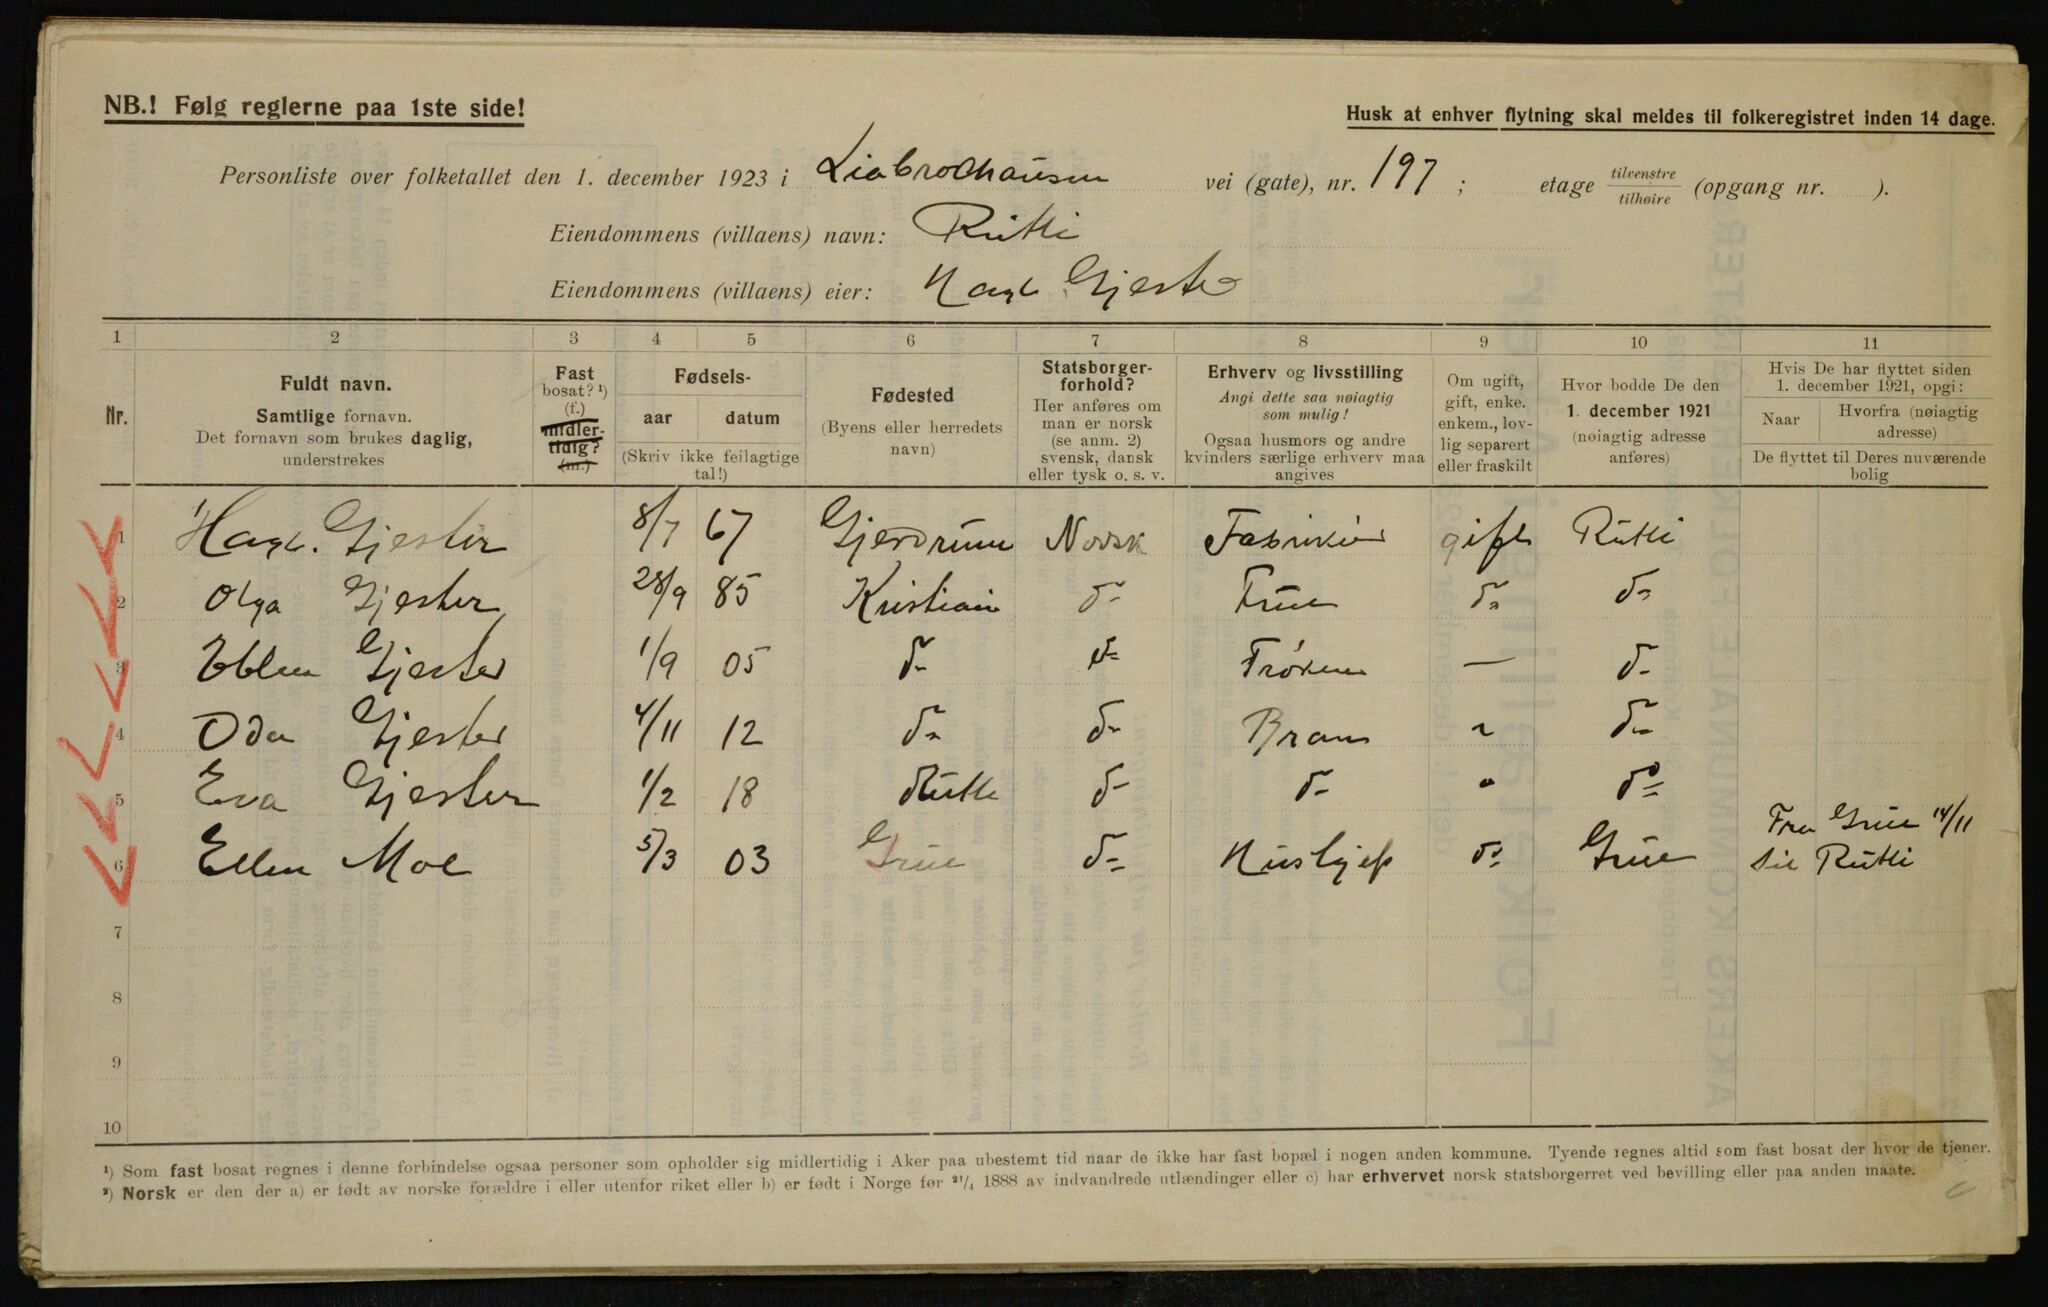 NB.! Følg reglerne paa 1ste side!
Husk at enhver flytning skal meldes til folkeregistret inden 14 dage.
Personliste over folketallet den 1. december 1923 i Liabrochausen vei (gate), nr. 197 ; etage tilvenstre tilhøire (opgang nr. ).
Eiendommens (villaens) navn: Rütli
Eiendommens (villaens) eier: Hagb. Gjester
1 2 3 4 5 6 7 8 9 10 11
Nr.
Fuldt navn.
Samtlige fornavn.
Det fornavn som brukes daglig,
understrekes
Fast
bosat? ¹)
(f.)
midler-
tidig?
(m.)
Fødsels-
aar datum
(Skriv ikke feilagtige
tal!)
Fødested
(Byens eller herredets
navn)
Statsborger-
forhold?
Her anføres om
man er norsk
(se anm. 2)
svensk, dansk
eller tysk o. s. v.
Erhverv og livsstilling
Angi dette saa nøiagtig
som mulig!
Ogsaa husmors og andre
kvinders særlige erhverv maa
angives
Om ugift,
gift, enke.
enkem., lov-
lig separert
eller fraskilt
Hvor bodde De den
1. december 1921
(nøiagtig adresse
anføres)
Hvis De har flyttet siden
1. december 1921, opgi:
Naar Hvorfra (nøiagtig
adresse)
De flyttet til Deres nuværende
bolig
1 Hagb. Gjester 8/7 67 Gjerdrum Norsk Fabrikør gift Rütli
2 Olga Gjester 28/9 85 Kristiania d- Frue d- d-
3 Gjester 1/9 05 d- d- Frøken — d-
4 Oda Gjester 4/11 12 d- d- Barn " d-
5 Eva Gjester 1/2 18 Rütli d- d- " d-
6 Ellen Moe 5/3 03 Grue d- Hushjelp d- Grue Fra Grue 14/11
til Rütli
7
8
9
10
¹) Som fast bosat regnes i denne forbindelse ogsaa personer som opholder sig midlertidig i Aker paa ubestemt tid naar de ikke har fast bopæl i nogen anden kommune. Tyende regnes altid som fast bosat der hvor de tjener.
²) Norsk er den der a) er født av norske forældre i eller utenfor riket eller b) er født i Norge før 21/4 1888 av indvandrede utlændinger eller c) har erhvervet norsk statsborgerret ved bevilling eller paa anden maate.